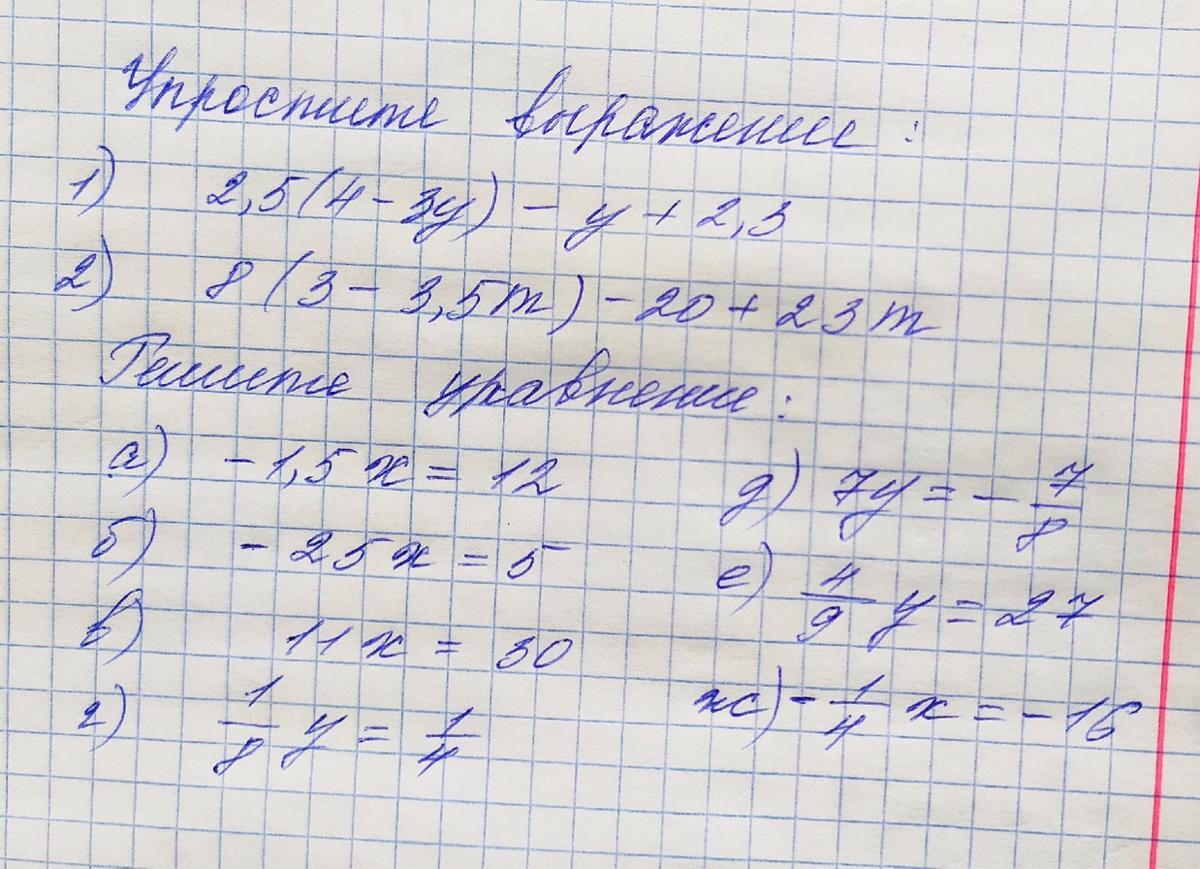 Упростите выражение:
1) 2,5(4-3y) - y + 2,3
2) 8(3 - 3,5m) - 20 + 23m
Решите уравнение:
а) -1,5x = 12
б) -25x = 5
в) 11x = 30
г) 1/8 y = 1/4
д) 7y = - 7/8
е) 4/9 y = 27
ж) - 1/4 x = -16